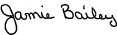 Jamie Bailey